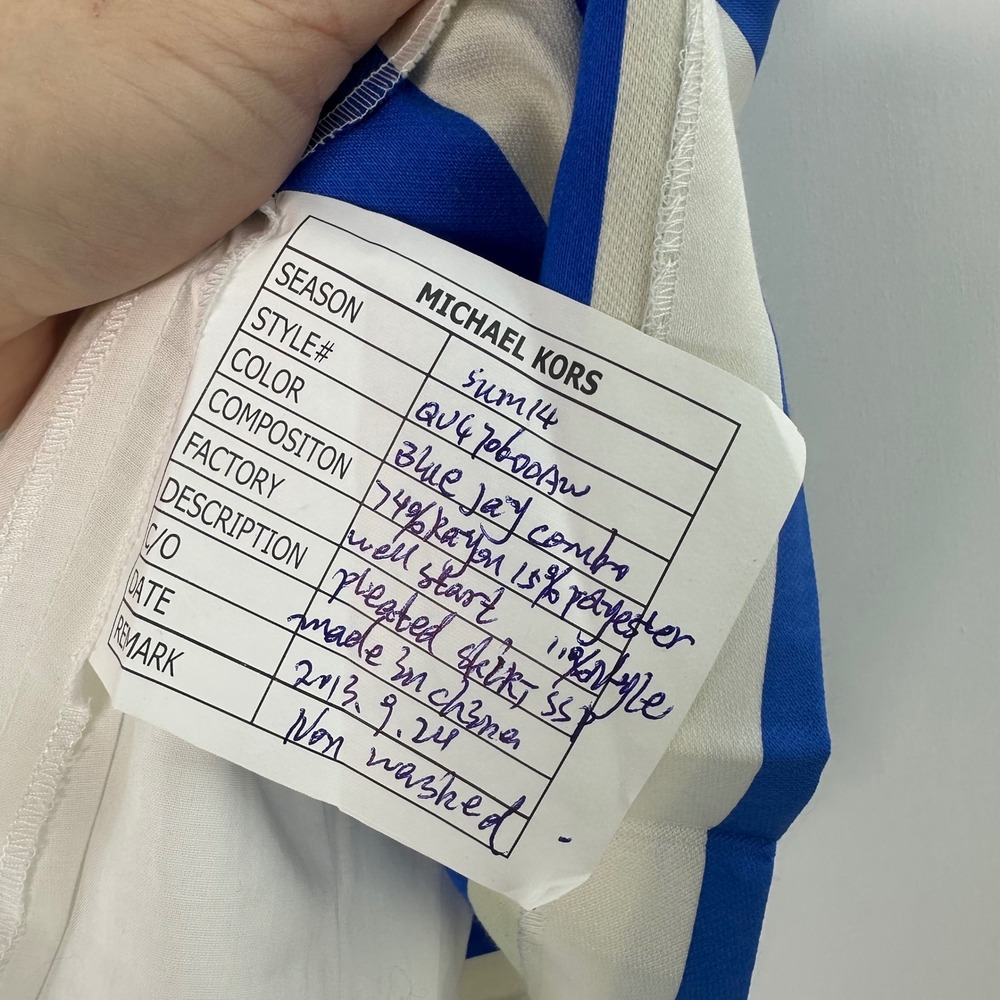 MICHAEL KORS
SEASON sum14
STYLE# QU470600AW
COLOR Blue Jay combo
COMPOSITON 74% Rayon 15% polyester 11%
FACTORY well start
DESCRIPTION pleated skirt, ssp
C/O made in china
DATE 2013.9.24
REMARK Non washed